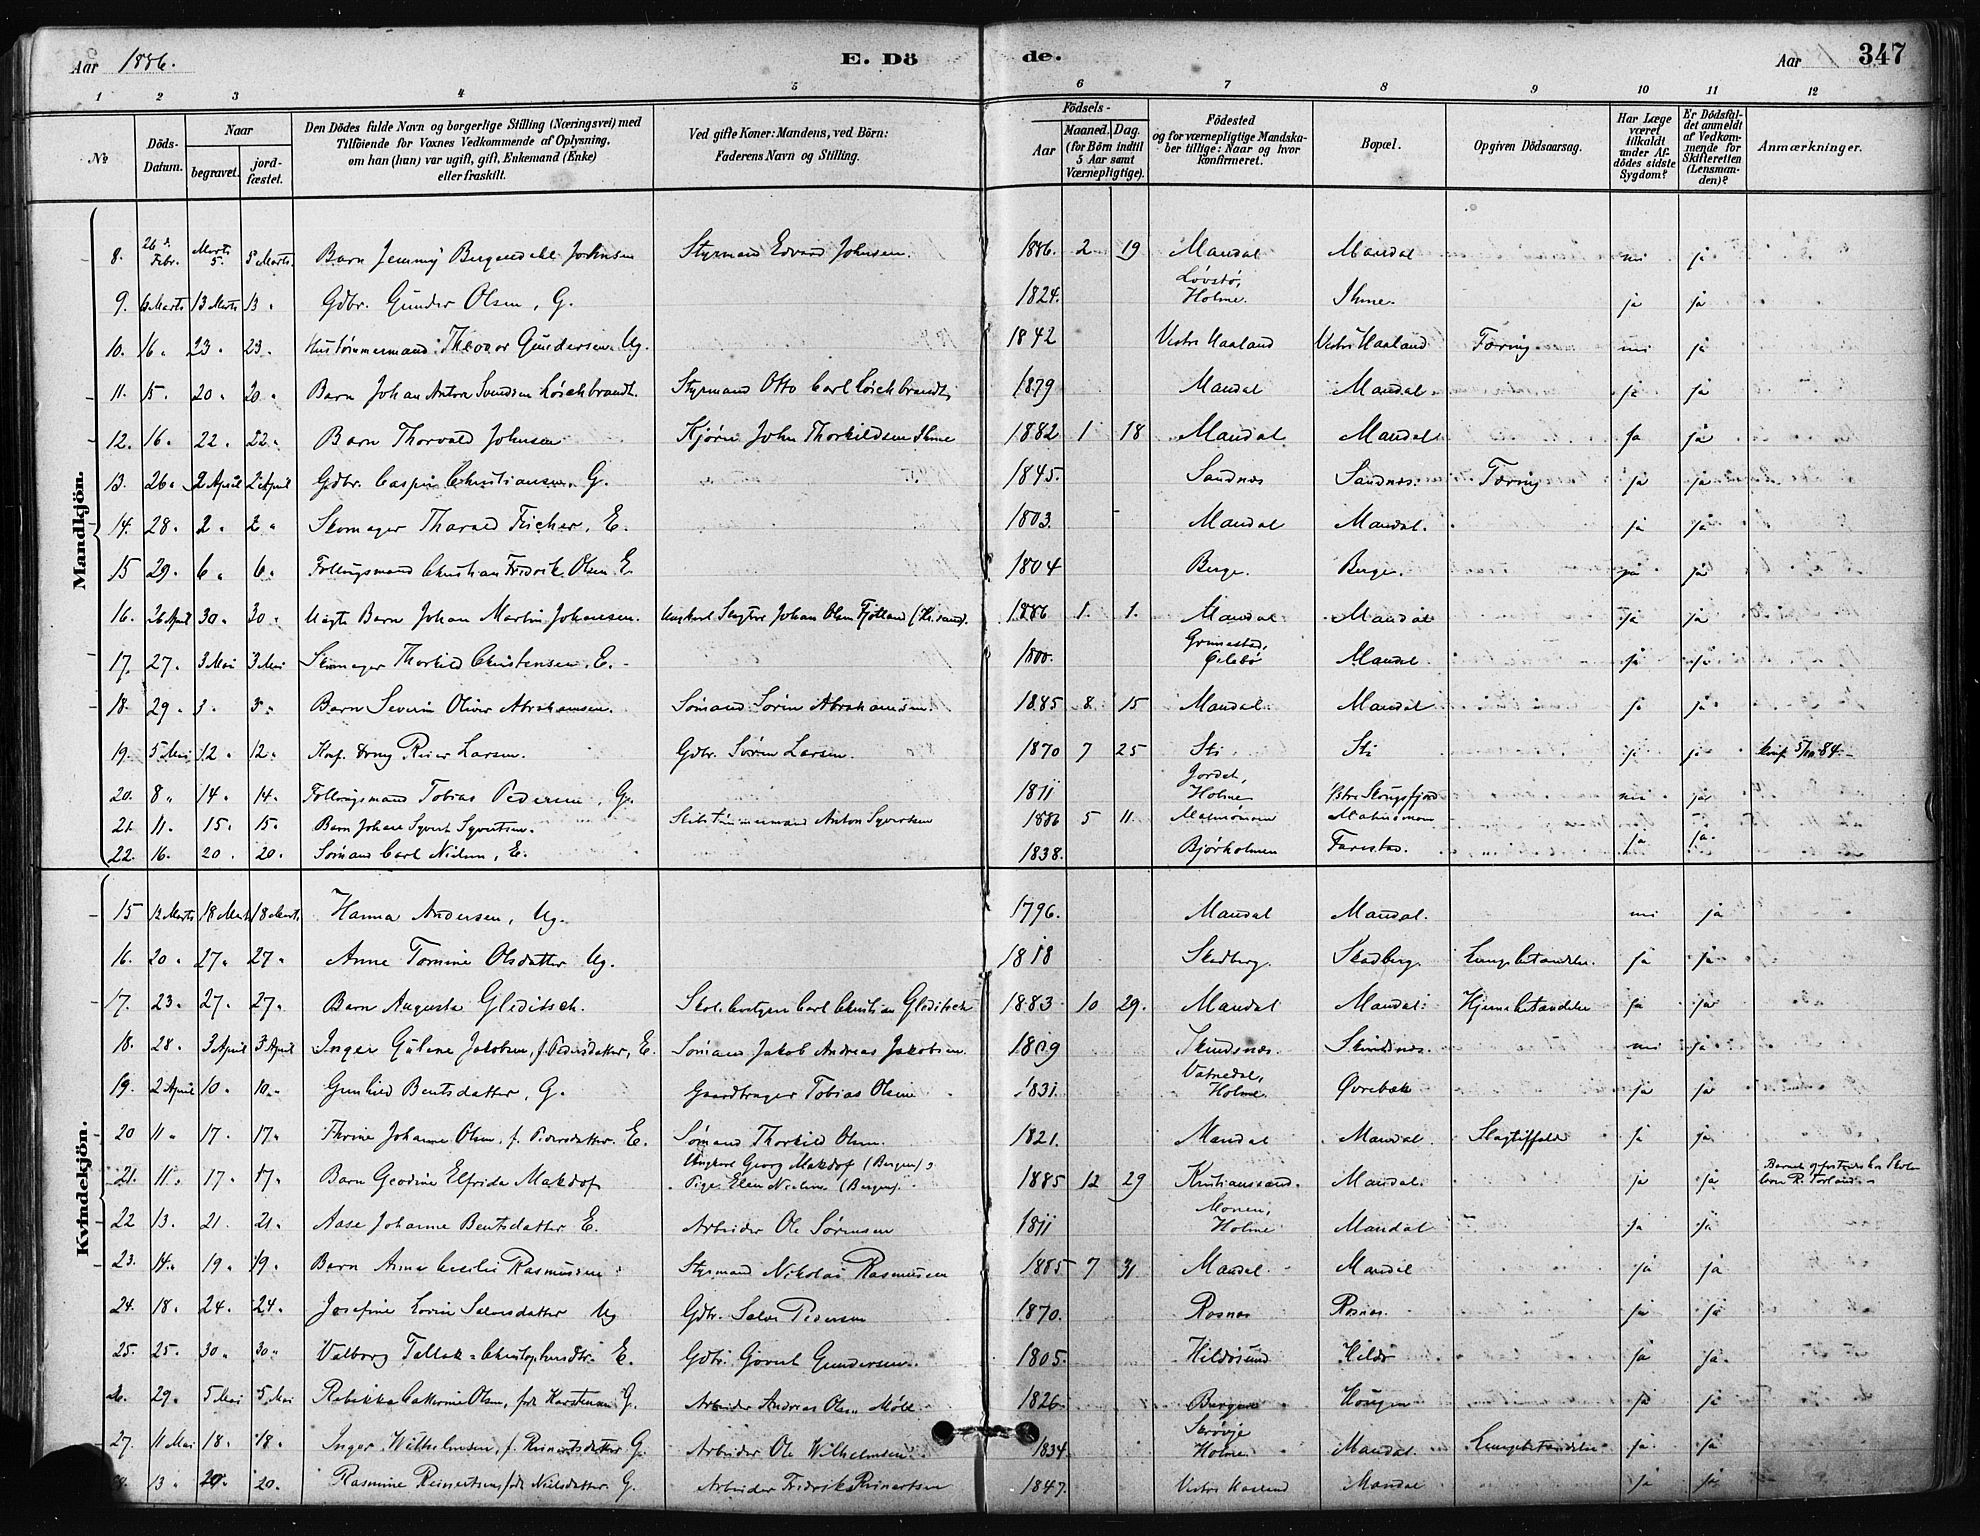 Aar 1886. E. Dö de. Aar 347
1 2 3 4 5 6 7 8 9 10 11 12
No
Döds-Datum.
Naar begravet. jord-fæstet.
Den Dödes fulde Navn og borgerlige Stilling (Næringsvei) med Tilföiende for Voxnes Vedkommende af Oplysning, om han (hun) var ugift, gift, Enkemand (Enke) eller fraskilt.
Ved gifte Koner: Mandens, ved Börn: Faderens Navn og Stilling.
Födsels- Aar Maaned. Dag. (for Börn indtil 5 Aar samt Værnepligtige).
Födested og for værnepligtige Mandska-ber tillige: Naar og hvor konfirmeret.
Bopæl.
Opgiven Dödsaarsag.
Har Læge været tilkaldt under Af-dödes sidste Sygdom?
Er Dödsfal-det anmeldt af Vedkom-mende for Skifteretten (Lensman-den)?
Anmærkninger.
Mandkjön.
8. 26 Febr. Marts 5. 5 Marts. Barn Jenny Bergendahl Johnsen Styrmand Edvard Johnsen. 1886. 2 19 Mandal Mandal nei ja
9. Marts 13 Marts 13 " Gdbr. Gunder Olsen, G. 1824. Løvstø, Holme. Ihme. ja ja
10. 16 " 23 " 23 " Hustømmermand Theodor Gundersen. Ug. 1842 Vestre Haaland Vestre Haaland Tæring nei ja
11. 15. 20 " 20 " Barn Johan Anton Svendsen Løschbrandt. Styrmand Otto Carl Løschbrandt 1879 Mandal Mandal ja ja
12. 16 " 22 " 22 " Barn Thorvald Johnsen Kjører John Thorkildsen Ihme 1882 1 18 Mandal Mandal ja ja
13. 26 " 2 April 2 April Gdbr. Casper Christiansen. G. 1845. Sandnæs Sandnæs. Tæring ja ja
14. 28 " 2 " 2 " Skomager Tharald Fischer, E. 1803. Mandal Mandal. ja ja
15 29. 6 " 6 " Follugsmand Christian Fredrik Olsen E. 1804 Berge. Berge. ja ja
16. 26 April 30 " 30 " Uægte Barn Johan Martin Johansen. Ungkarl Johan Olsen Fjotland (Kr.sand). 1886 1. 1. Mandal Mandal ja ja
17. 27. 3 Mai 3 Mai Skomager Thorkild Christensen, E. 1800. Grimestad, Mandal. ja ja
18. 29 " 3 " 3 " Barn Severin Oliver Abrahamsen. Sømand Sørin Abrahamsen. 1885 8. 15 Mandal. Mandal ja ja
19. 5 Mai 12 " 12 " Konf. Dreng Reier Larsen. Gdbr. Søren Larsen. 1870 7 25 Sti Sti ja ja konf. 5/10 84.
20. 8 " 14 " 14 " Follugsmand Tobias Pedersen, G. 1811 Jordet, Holme Vstre Skougsfjord nei ja
21. 11. 15. 15. Barn Johan Syvert Syvertsen. Skibstømmermand Anton Syvertsen 1886 5 11 Malmømoen Malmømoen ja ja
22. 16. 20. 20. Sømand Carl Nielsen, E. 1838. Bjørholmen Farestad. ja ja
Kvindekjön.
15 Marts 18 Marts 18 Marts. Hanna Andersen, Ug. 1796. Mandal Mandal. nei ja
16. 20 " 27 " 27 " Anne Tomine Olsdatter Ug. 1818 Skadberg. Skadberg. Lungebetændelse. ja ja
17. 23 " 27 " 27 " Barn Augusta Gleditsch. Carl Christian Gleditsch 1883. 10 29. Mandal Mandal. Hjernebetændelse ja ja
18. 28 " 3 April 3 April Inger Gulene Jakobsen, f. Pedersdatter, E. Sømand Jakob Andreas Jakobsen. 1809 Skindsnæs. Skindsnæs. nei ja
19. 2 April 10 " 10 " Gunhild Bentsdatter, G. Gaardbruger Tobias Olsen 1831. Vatnedal, Holme Øvrebøk ja ja
20 11 " 17. 17 " Thrine Johanne Olsen, f. Pedersdatter. E. Sømand Thorkild Olsen. 1821. Mandal Mandal. Slagtilfælde ja ja
21. 11 " 17 " 17 " Barn Geodine Elfrida Makdof Ungkarl Georg Makdof (Bergen) & Pige Elen Nielsen (Bergen). 1885 12 29 Kristianssand. Mandal. ja ja
22 13. 21. 21. Aase Johanne Bentsdatter E. Arbeider Ole Sørensen 1811 Monen, Holme Mandal ja ja
23. 14 " 19 " 19 " Barn Anna Cecilie Rasmussen Styrmand Nikolai Rasmussen 1885 7 31 Mandal. Mandal ja ja
24. 18 " 24. 24 " Josefine Lovise Salvesdatter Ug Gdbr. Salve Pedersen 1870. Rosnes Rosnes. ja ja
25. 25. 30 " 30 " Valborg Tallak = Christophersdtr. E. Gdbr. Govert Gundersen. 1805. Hildøsund Hildø ja ja.
26. 29. 5 Mai 5 Mai Rebekka Cathrine Olsen, født Karstensen G. Arbeider Andreas Olsen Møll 1826. Bergen Hougen ja ja
27. 11 Mai 18. 18. Inger Wilhelmsen, f. Reinertsdatter G. Arbeider Ole Wilhelmsen. 1834. Skrøvje Holme Mandal. Lungebetændelse ja ja
13 " 20. 20. Rasmine Reinertsen, født Nielsdatter G. Arbeider Fredrik Reinertsen 1847. Vestre Haaland Mandal ja ja